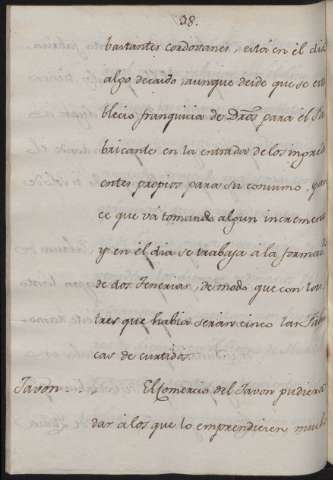 98.
bastantes cordovanes, està en èl dia
algo decaido, aunque desde que se esta
blecio franquicia de Dros para èl Fa
bricante en la entrada de los ingredi
entes propios para su consumo, pare
ce que và tomando algun incremento
y en èl dia se trabaja à la forma
de dos Tenerias, de modo que con las
tres que habia seràn cinco las Fabri
cas de curtidos.
Javon. El Comercio del Javon pudiera
dar à los que lo emprendieren mucho